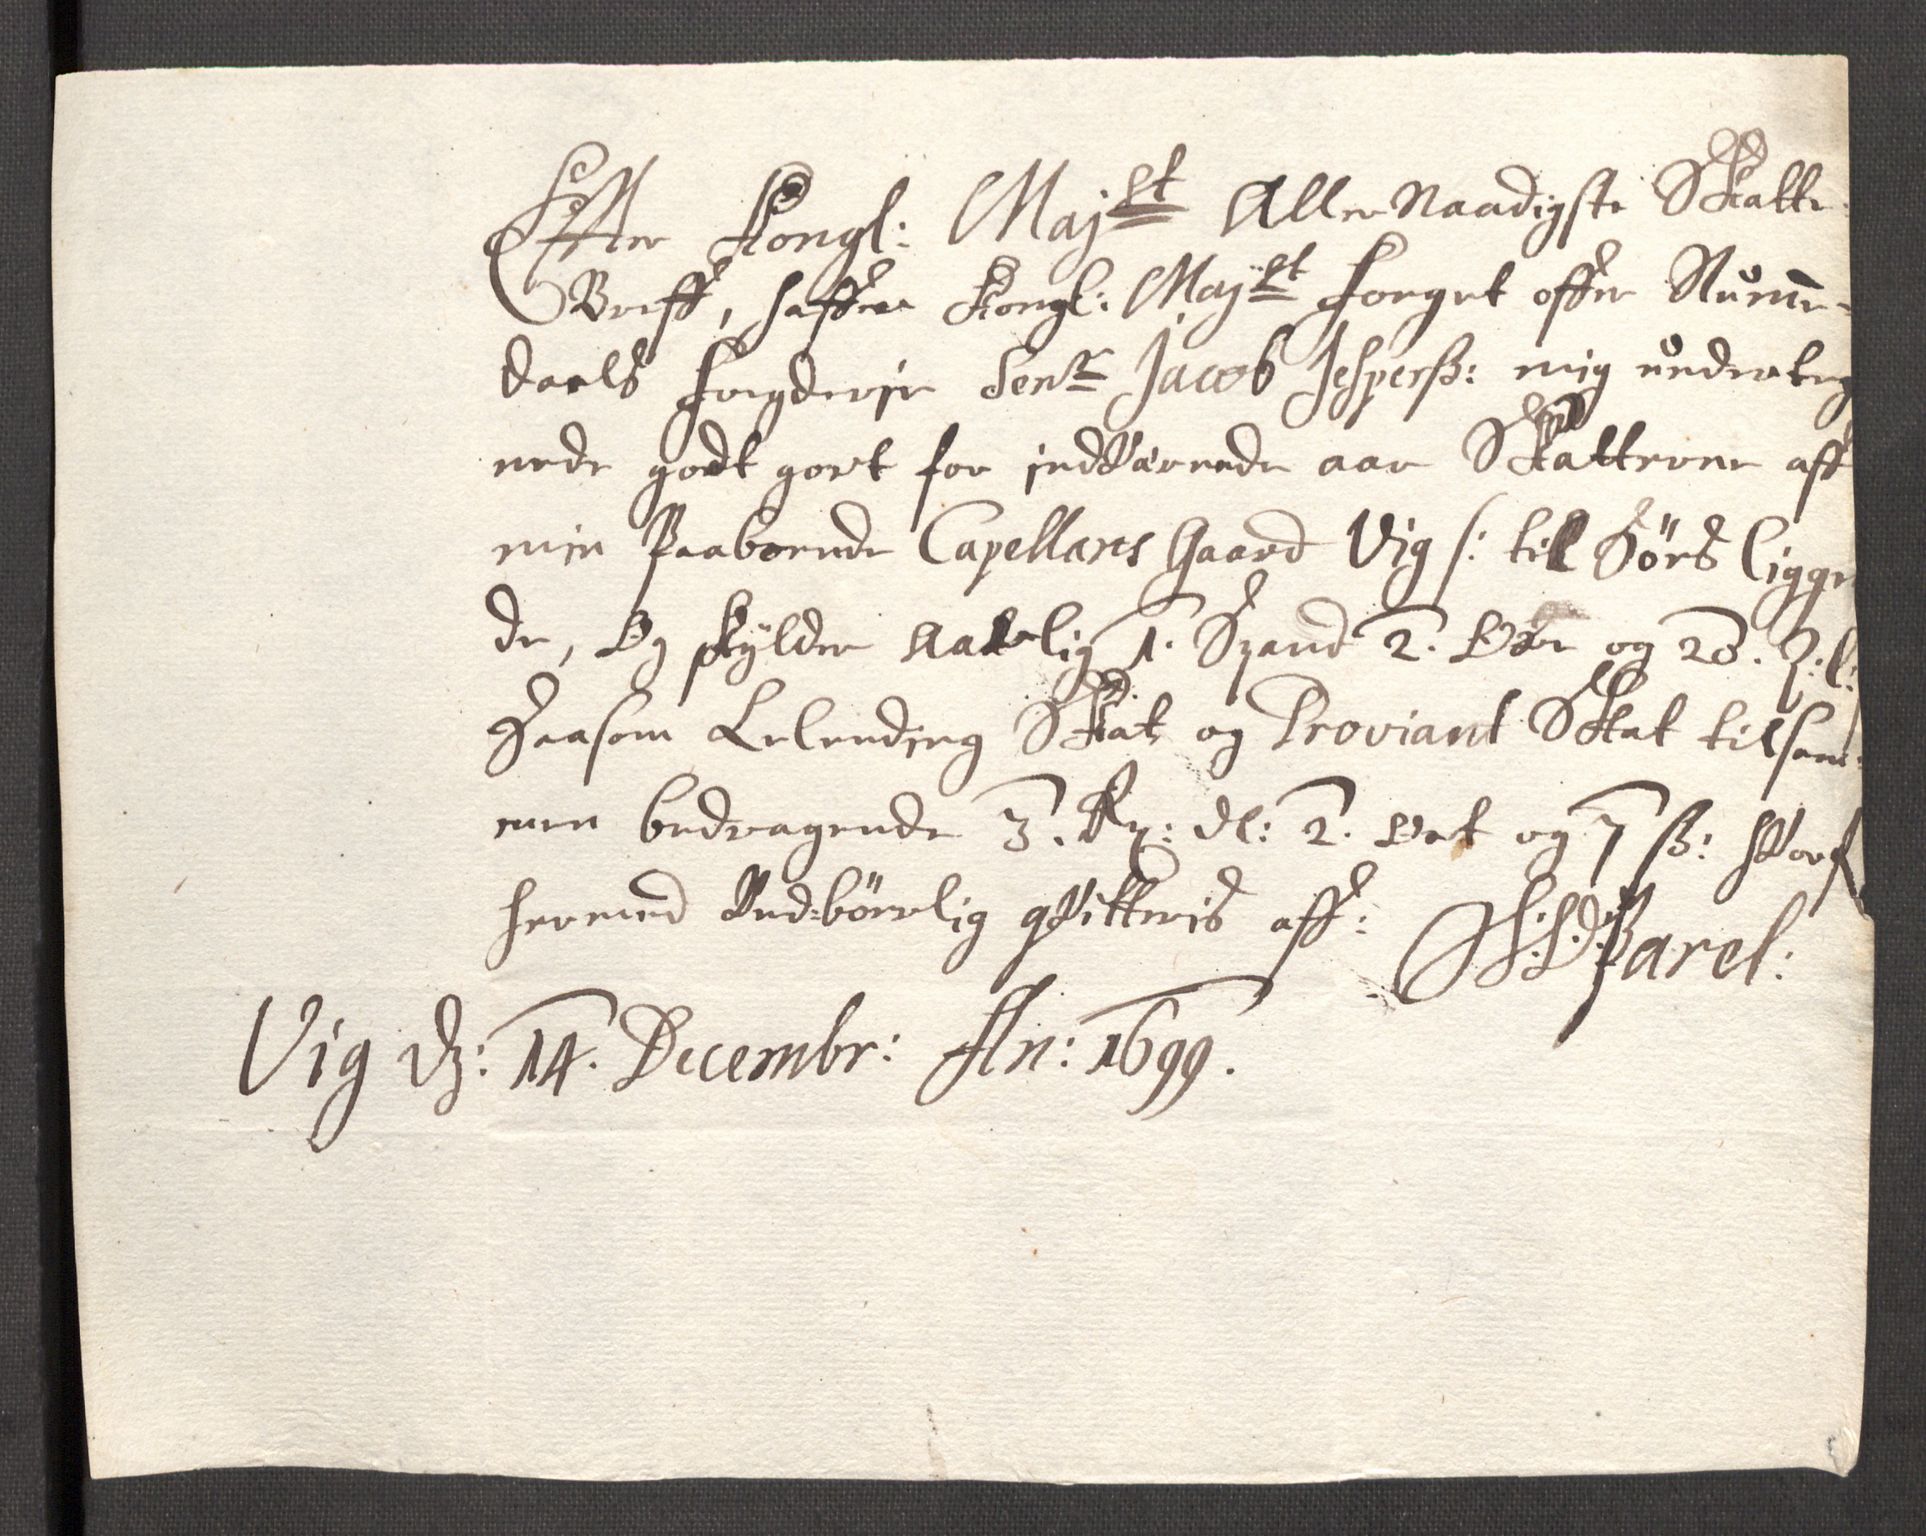 Effter Kongl: Maj.st Aller Naadigste Skatte-
Breff, haffver Kongl: Maj.st Foeget offver Numme-
daels Foegderje Sen.r Jacob Jespersß: mig underteg
nede godt giort for indWærende aar Skatterne aff
min Paaboende Capellans Gaard Vig /: til Förd ligge
de, Og skylder Aarlig 1. Spand 2. Øre og 20. z: l:
Saasom Leleending Skat og Proviant Skat tilsam-
men bedragende 3. Rx: dl: 2. Ort og 7 ß: HVor f
hermed Wed-börlig qVitteris aff: H: S: D: Parel:
Vig dz: 14. Decembr: An: 1699.